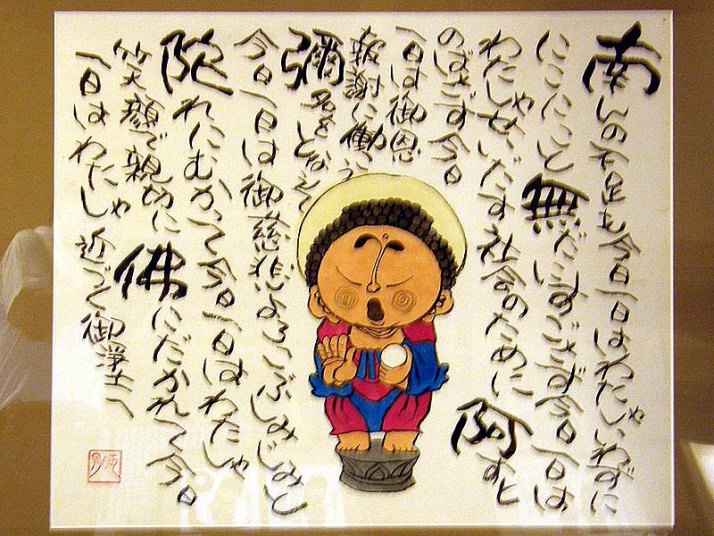 南んの不足も今日一日はわたしゃいわずに
にこにこと無だにすごさず今日一日は
わたしゃせいだす社会のために阿すと
のばさず今日
一日は御恩
報謝に働こう
彌名をとなえて
今日一日は御慈悲よろこぶしみじみと
陀れにむかって今日一日はわたしゃ
笑顔で親切に佛にだかれて今日
一日はわたしゃ近づく御浄土へ